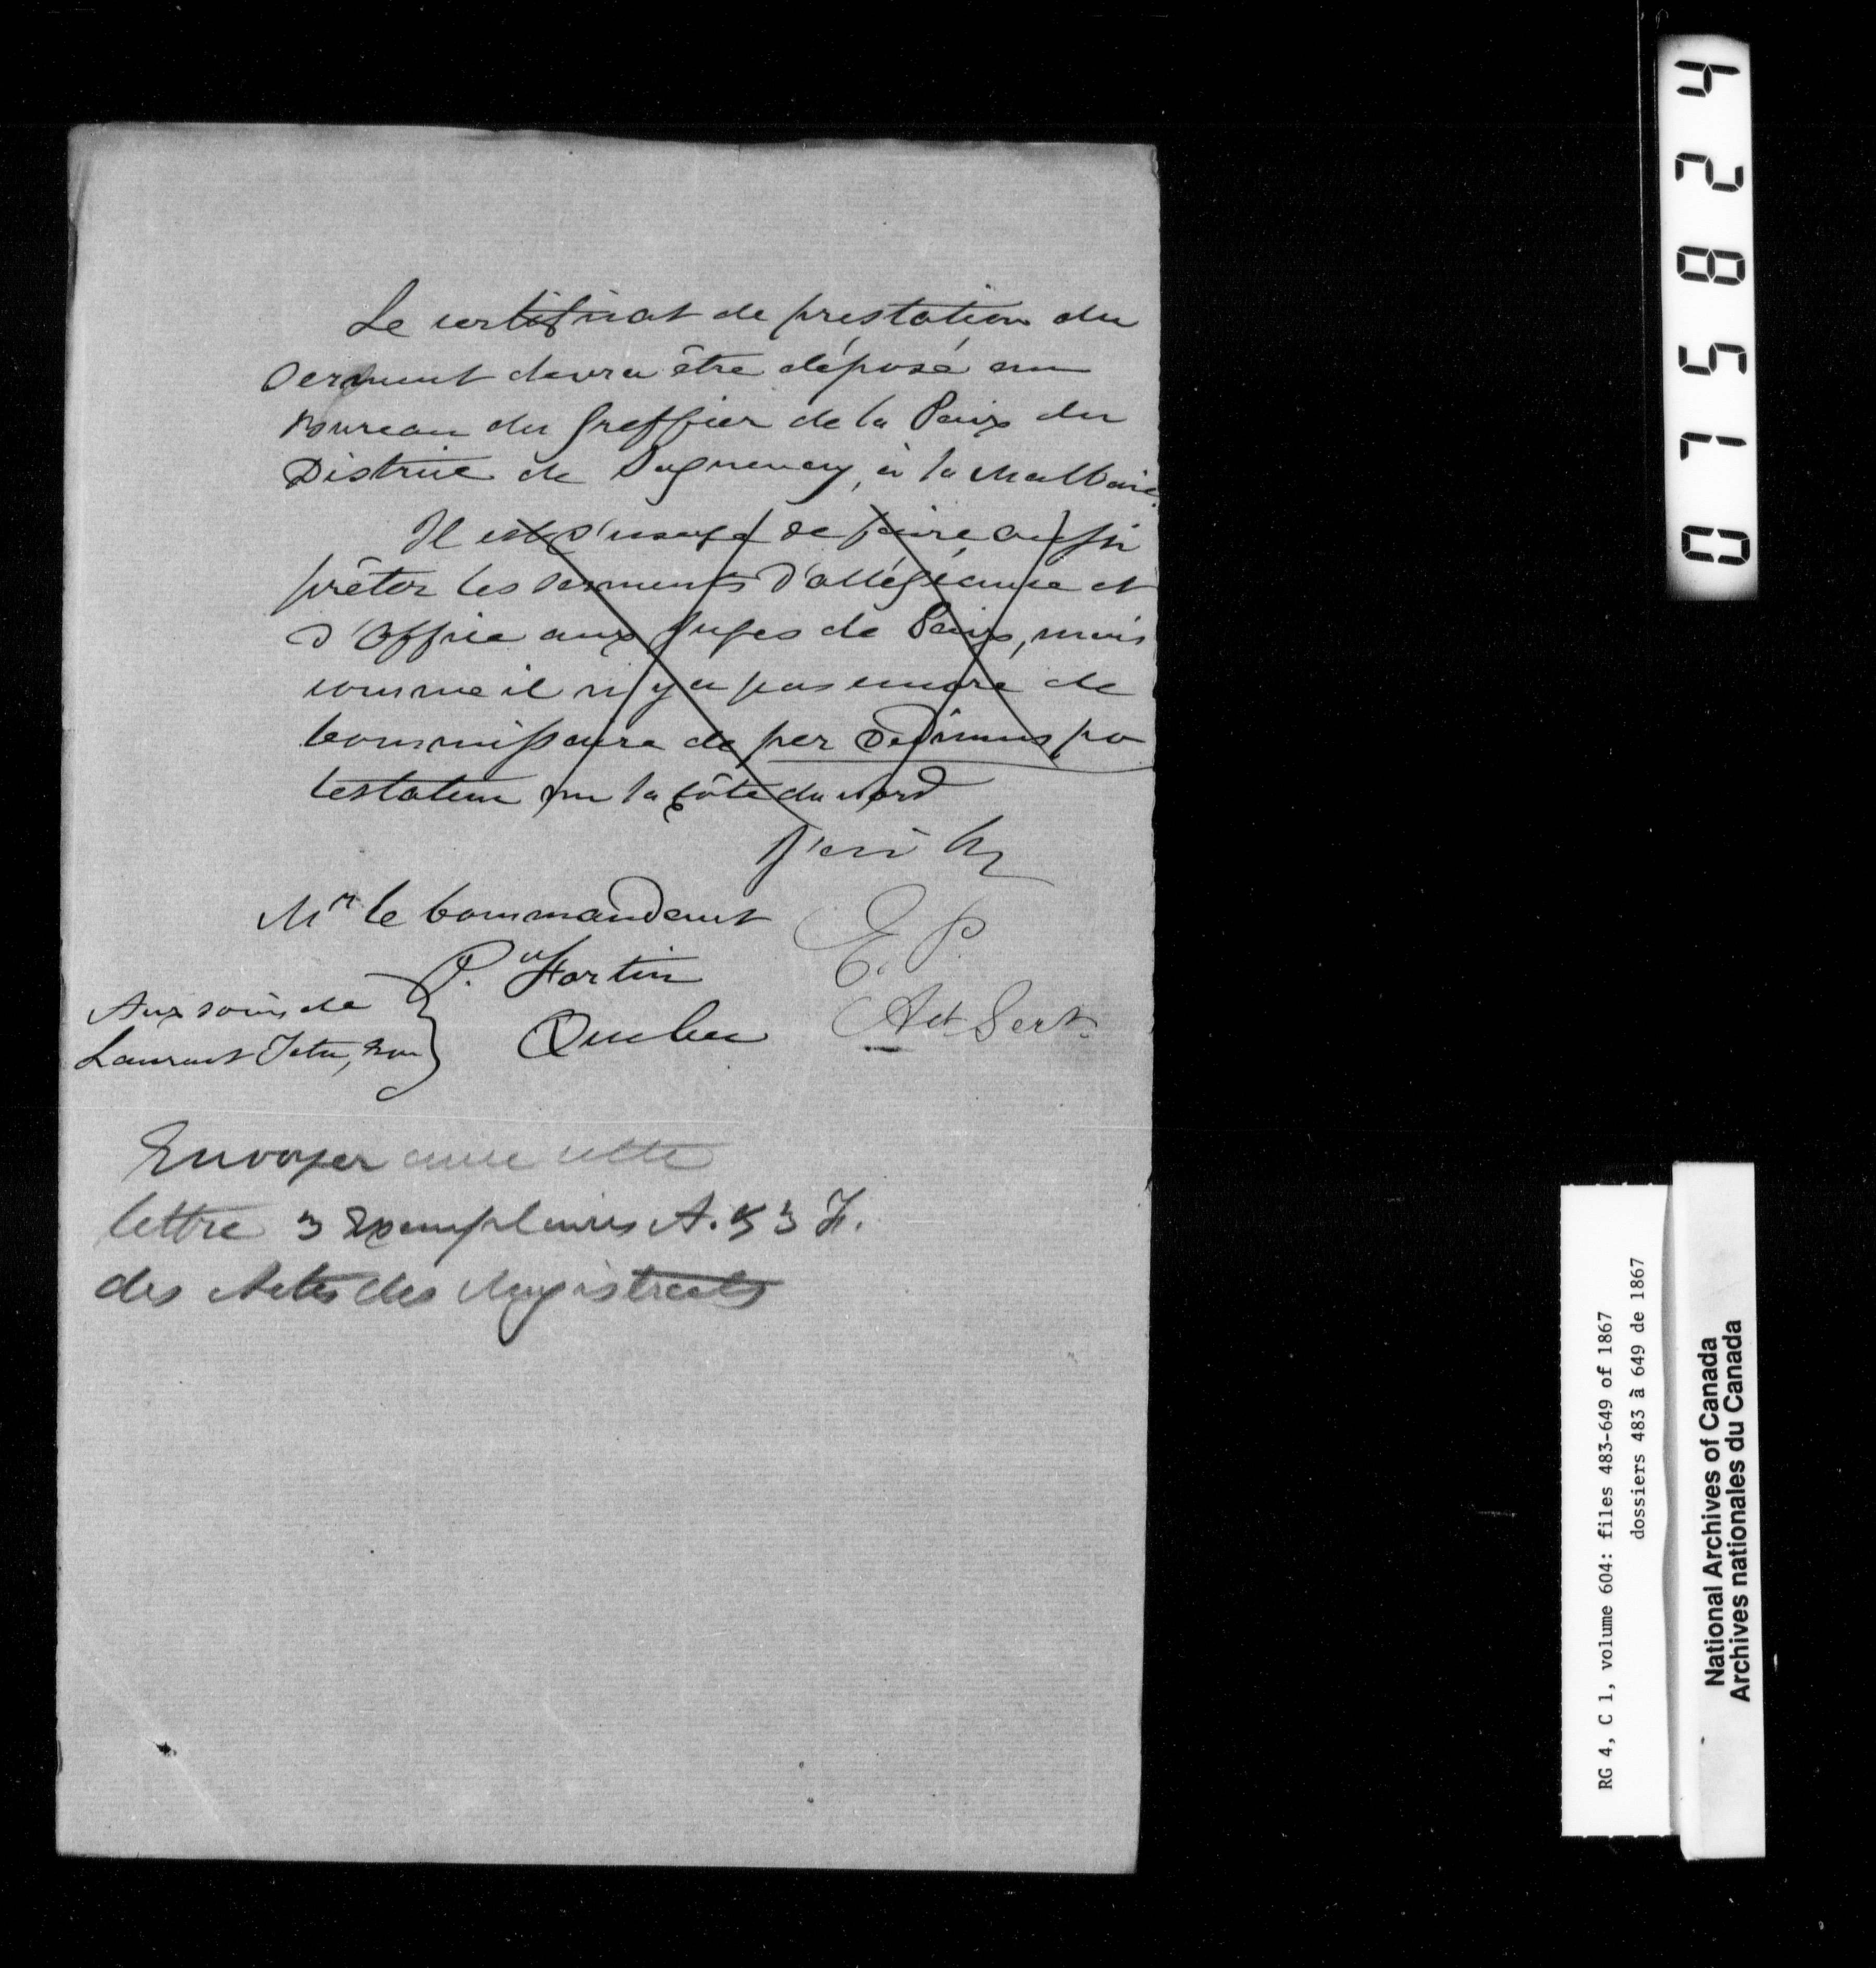 Le certificat de prestation du
Serment devra être déposé au
Bureau du Greffier de la Paix du
District de Saguenay, à la Malbaie.
Il est d'usage de faire aussi
prêter les serments d'allégeance et
d'Office aux Juges de Paix, mais
comme il n'y a pas encore de
Commissaire de per Dedimus po
testatem sur la Côte du Nord
J'ai
Mr le Commandant
P. Fortin
Québec
Aux soins de
Laurent Tetu, Ecr
E. P.
Act Secr.
Envoyer avec cette
lettre 3 Exemplaires A. & 3 F.
des Actes des Magistrats
0 7 5 8 2 4
RG 4, C 1, volume 604: files 483-649 of 1867
dossiers 483 à 649 de 1867
National Archives of Canada
Archives nationales du Canada